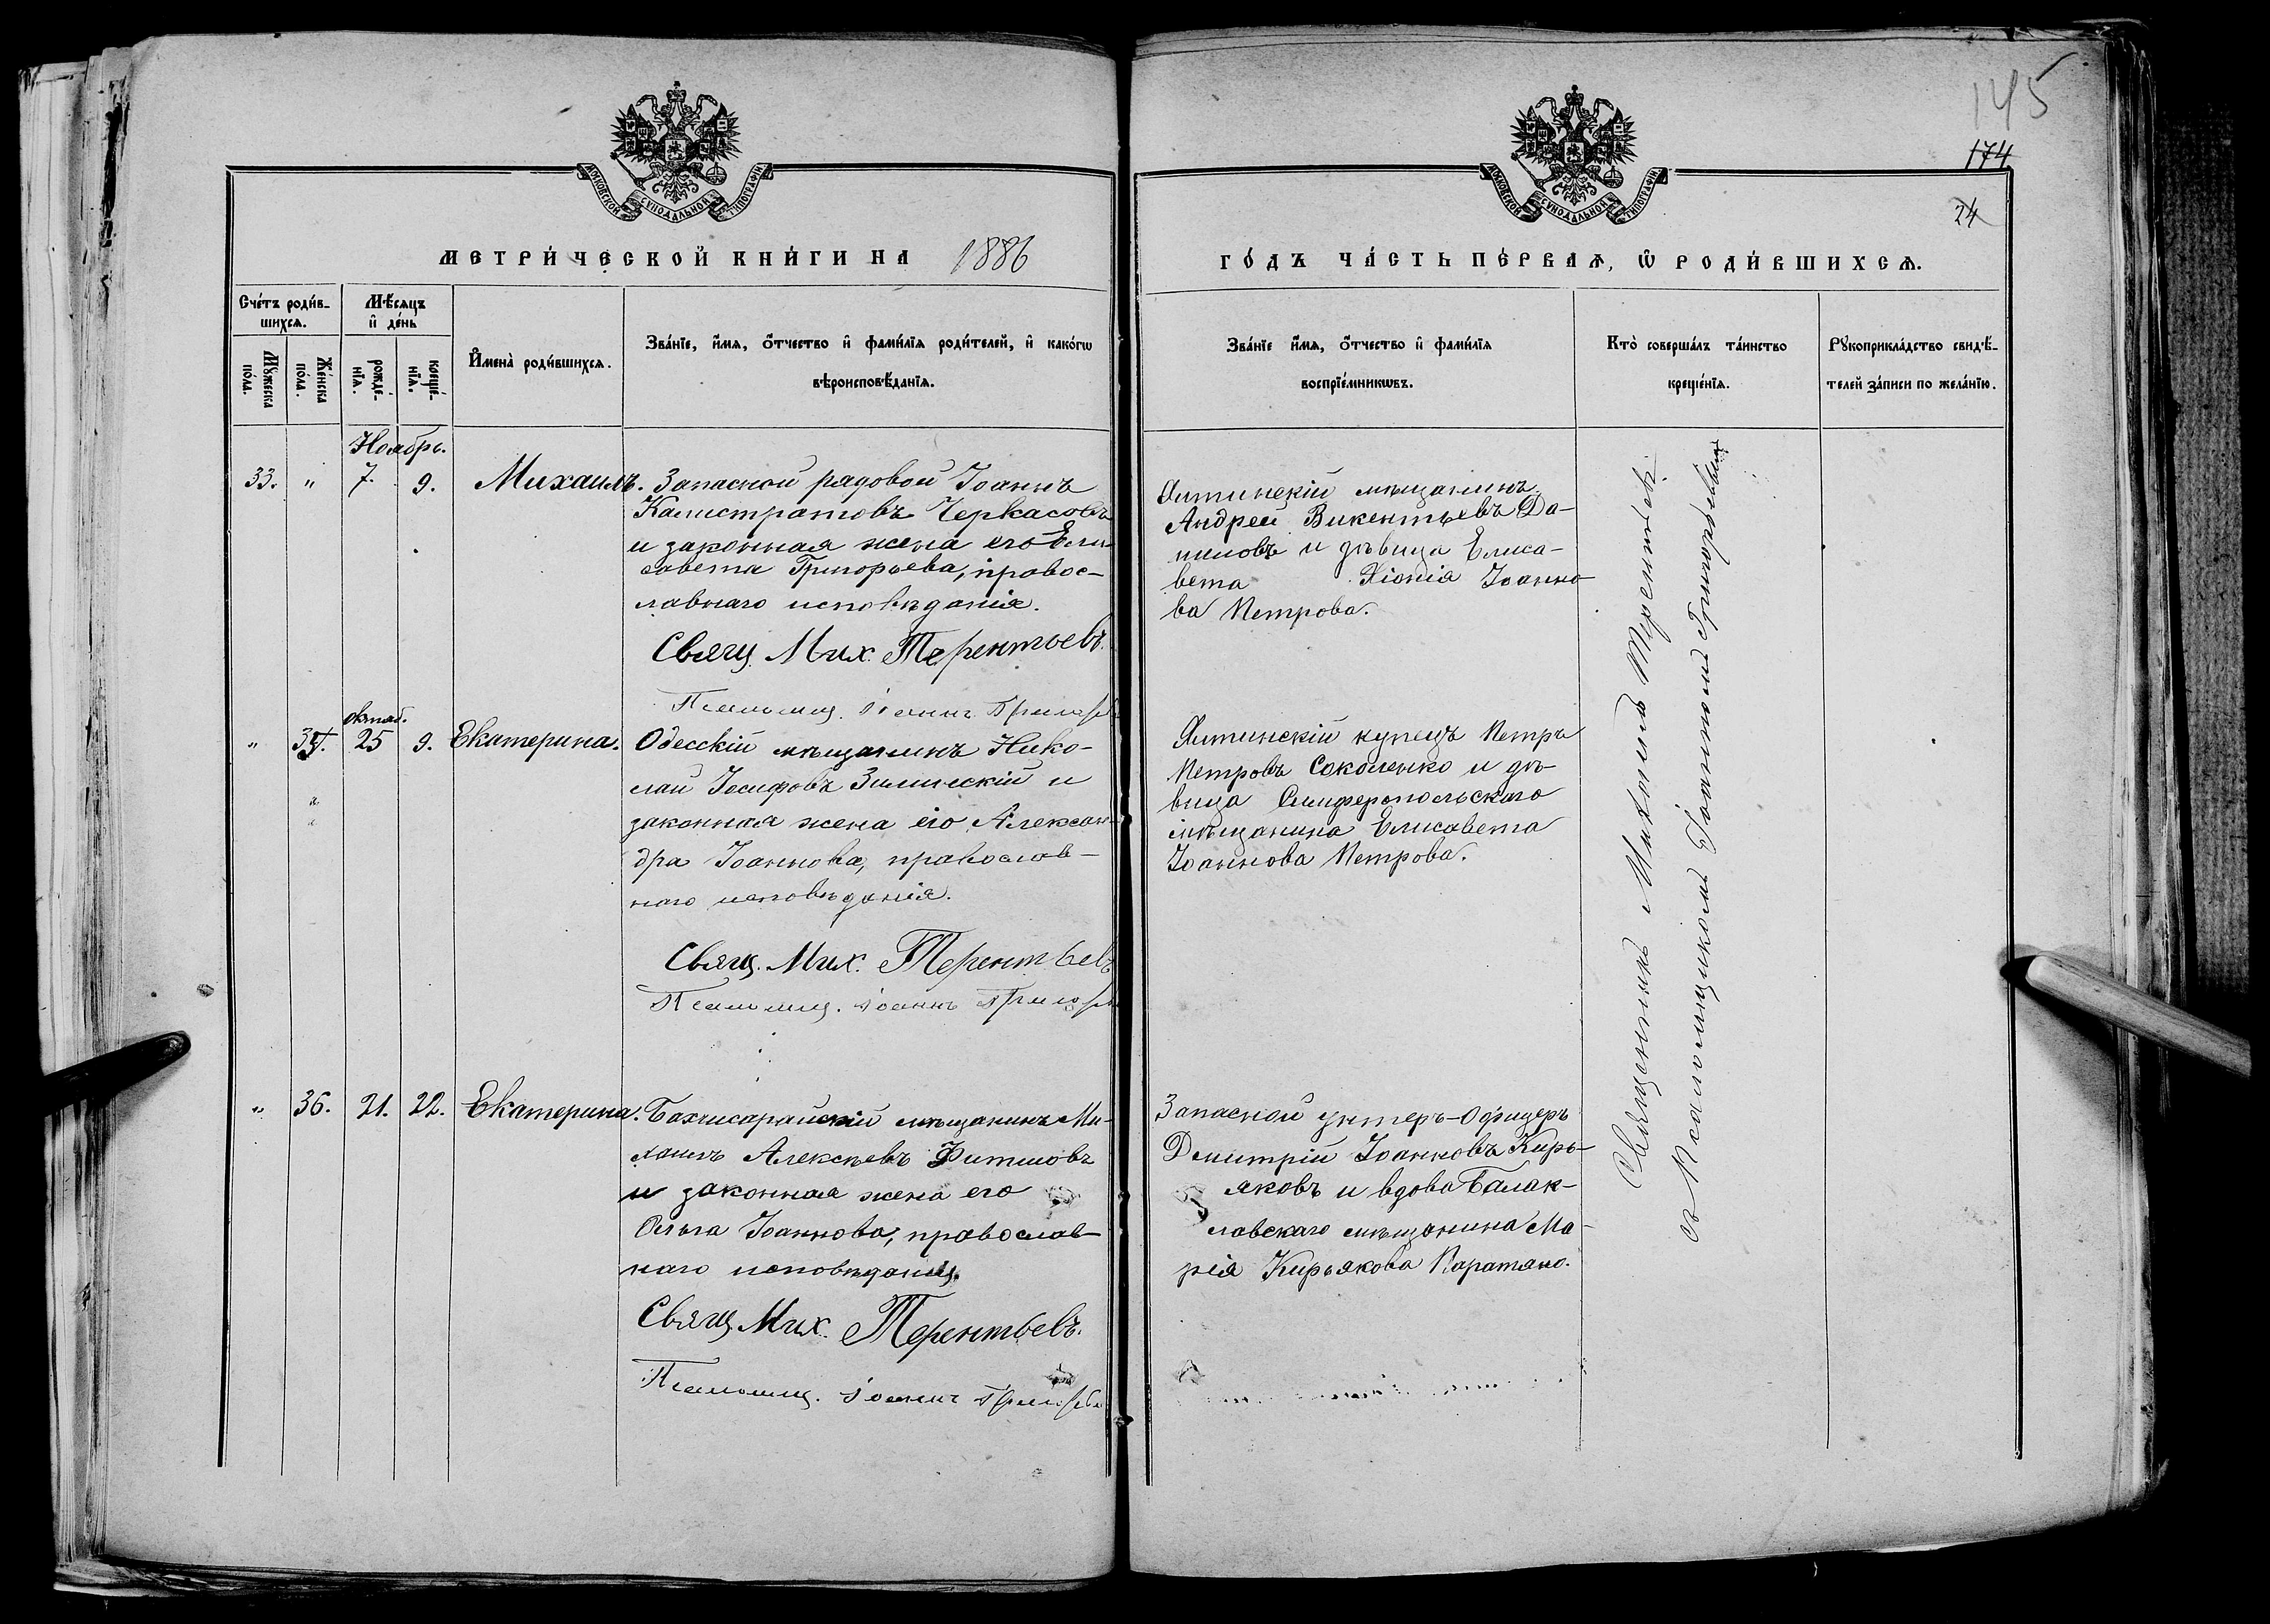 145
174
24
МОСКОВСКОЙ СѴНОДАЛЬНОЙ ТИПОГРАФІИ
МОСКОВСКОЙ СѴНОДАЛЬНОЙ ТИПОГРАФІИ
МЕТРИ́ЧЕСКОЙ КНИ́ГИ НА 1886
ГО́ДЪ ЧА́СТЬ ПЕ́РВАЯ, Ѿ РОДИ́ВШИХСЯ.
Сче́тъ роди́в-
шихсѧ.
Мꙋ́жеска
по́ла.
Же́нска
по́ла.
Мѣ́сяцъ
и҆ де́нь
рожде́-
нїѧ.
креще́-
нїѧ.
И҆мена̀ роди́вшихсѧ.
Зва́нїе, и҆́мѧ, ѻ҆́тчество и҆ фами́лїѧ роди́телей, и҆ како́гѡ
вѣроисповѣ́данїѧ.
Зва́нїе и҆́мѧ, ѻ҆́тчество и҆ фами́лїѧ
воспрїе́мникѡвъ.
Кто̀ соверша́лъ та́инство
креще́нїѧ.
Рꙋкоприкла́дство свидѣ́-
телей за́писи по жела́нїю.
Ноябрь.
33. " 7. 9. Михаилъ.
Запасной рядовой Іоаннъ
Калистратовъ Черкасовъ
и законная жена его Ели-
савета Григорьева, правос-
лавнаго исповѣданія.
Свящ. Мих. Терентьевъ.
Псаломщ. Іоаннъ
Ялтинскій мѣщанинъ
Андрей Викентьевъ Да-
ниловъ и дѣвица Елиса-
вета Хіонія Іоанно-
ва Петрова.
октяб.
" 25 9. Екатерина.
Одесскій мѣщанинъ Нико-
лай Іосифовъ Зилинскій и
законная жена его Алексан-
дра Іоаннова, православ-
наго исповѣданія.
Свящ. Мих. Терентьевъ
Псаломщ. Іоаннъ
Ялтинскій купецъ Петръ
Петровъ Соколенко и дѣ-
вица Симферопольскаго
мѣщанина Елисавета
Іоаннова Петрова.
" 36. 21. 22. Екатерина.
Бахчисарайскій мѣщанинъ Ми-
хаилъ Алексѣевъ
и законная жена его
Ольга Іоаннова, православ-
наго исповѣданія.
Свящ. Мих. Терентьевъ.
Псаломщ. Іоаннъ
Запасной унтеръ-Офицеръ
Дмитрій Іоанновъ Кирь-
яковъ и вдова Балак-
лавскаго мѣщанина Ма-
рія Кирьякова
Священникъ Михаилъ Терентьевъ
съ Псаломщикомъ Іоанномъ Григорьевымъ